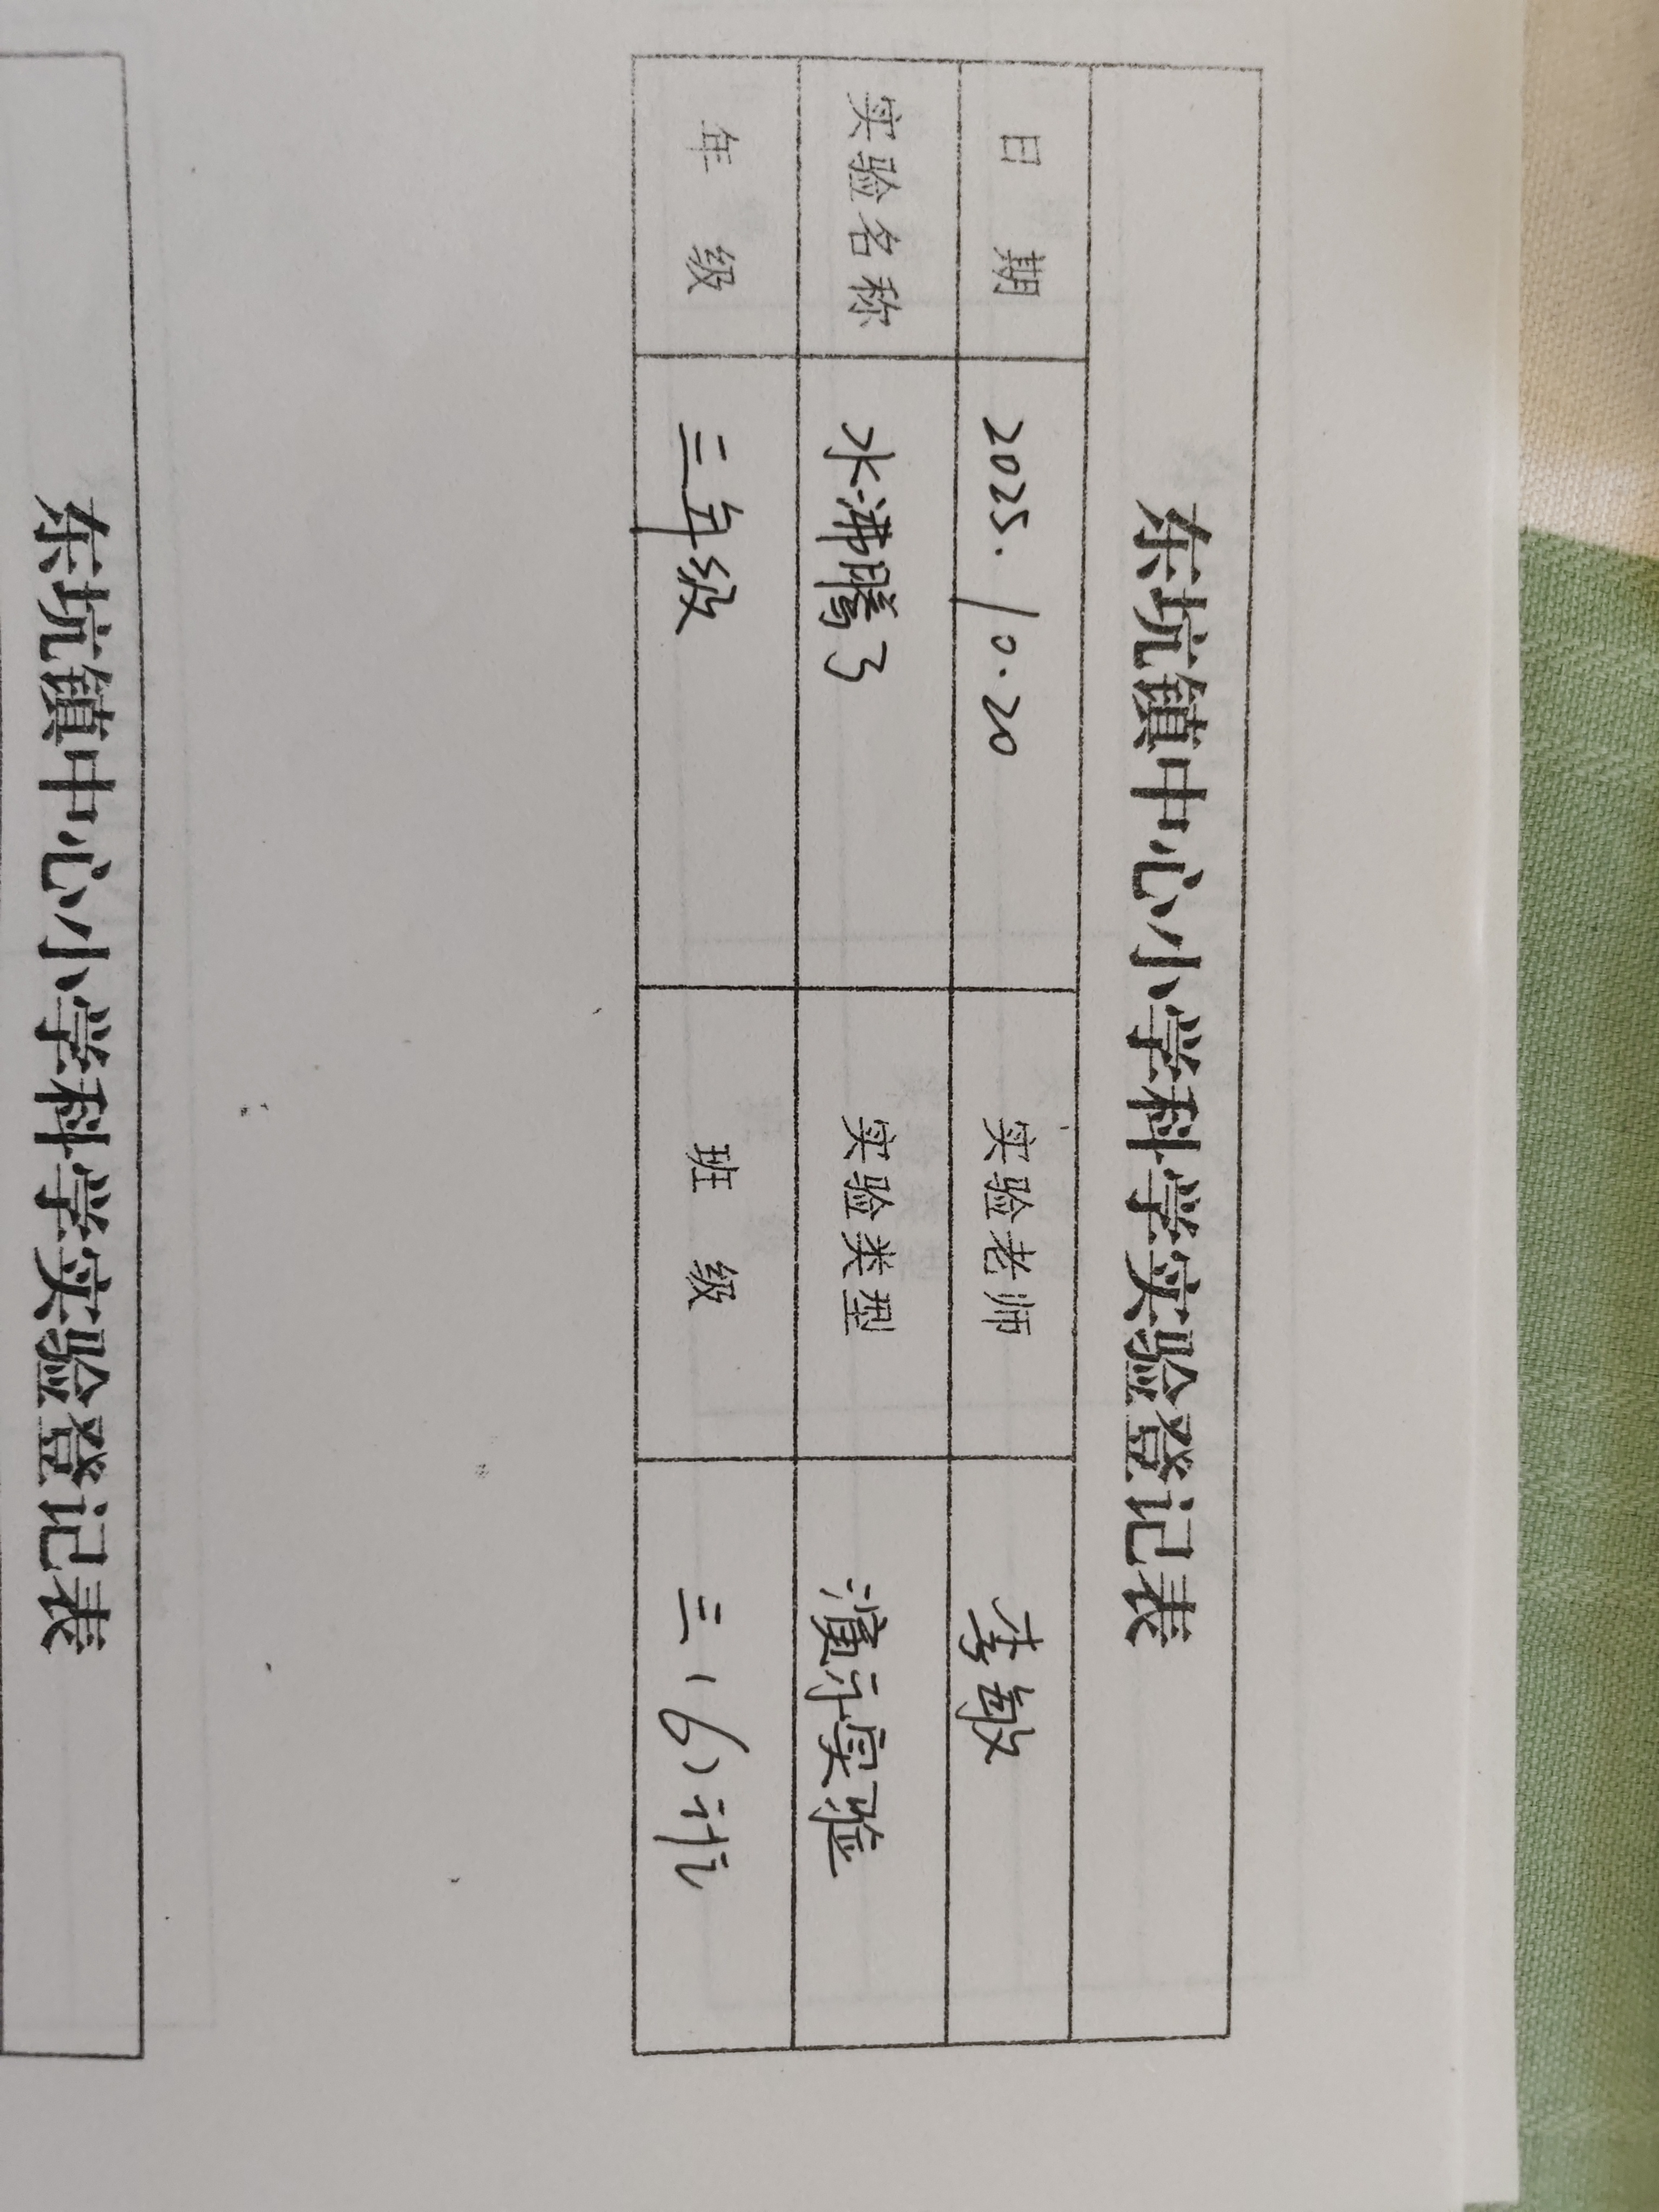 东坑镇中心小学科学实验登记表
日 期 2025.10.20 实验老师 李敏
实验名称 水沸腾了 实验类型 演示实验
年 级 三年级 班 级 三（6）班
东坑镇中心小学科学实验登记表